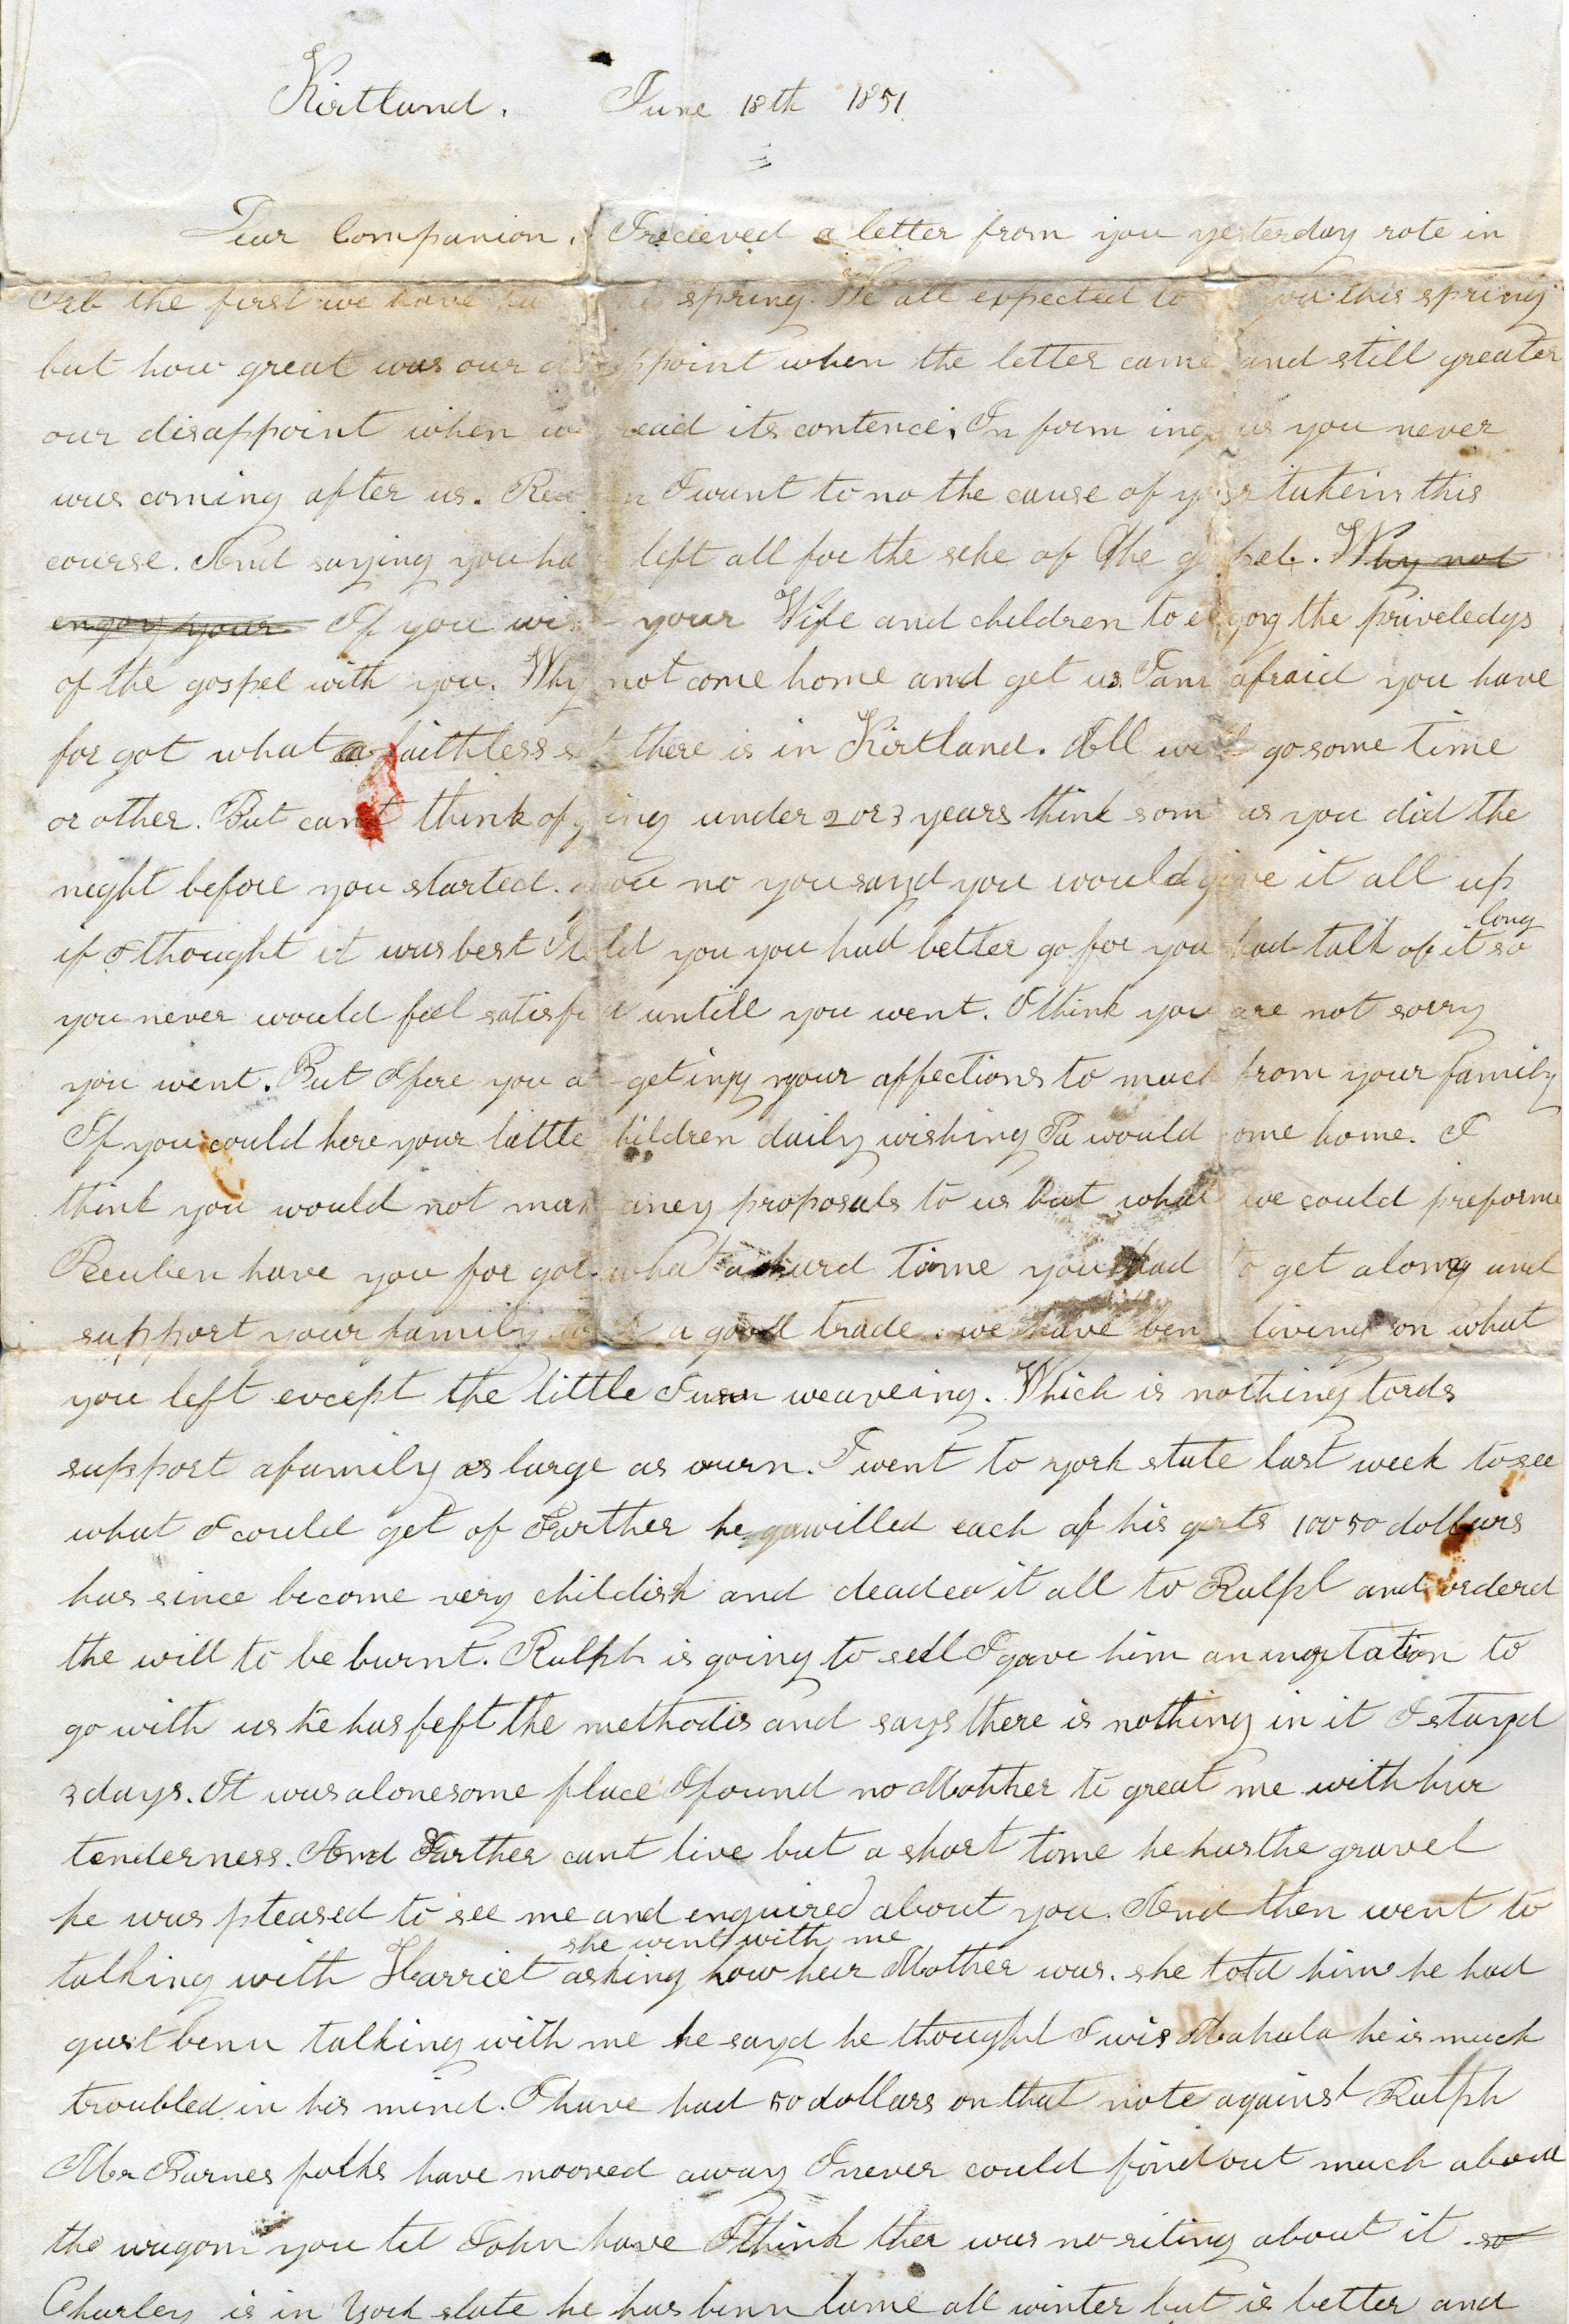 Kirtland. June 18th 1851
Dear Companion. I recieved a letter from you yesterday rote in
Feb the first we have spring. We all expected to you this spring
but how great was our disappoint when the letter came and still greater
our disappoint when we read its contence. In form ing us you never
was coming after us. I want to no the cause of your takein this
course. And saying you had left all for the seke of the gospel. Why not
engoy your If you wish your Wife and children to engoy the priveledgs
of the gospel with you. Why not come home and get us I am afraid you have
for got what a faithless set there is in Kirtland. All will go some time
or other. But cant think of going under 2 or 3 years think som as you did the
night before you started. you no you sayd you would give it all up
if I thought it was best I told you you had better go for you had talk of it so long
you never would feel satisfied untill you went. I think you are not sorry
you went. But I fere you are geting your affections to much from your family
If you could here your little children daily wishing Pa would come home. I
think you would not make aney proposals to us but what we could preforme
Reuben have you for got what a hard time you had to get along and
support your family with a good trade. we have ben living on what
you left except the little I earn weaveing. Which is nothing tords
support a family as large as ourn. I went to york state last week to see
what I could get of Farther he willed each of his gerls 100 50 dollars
has since become very childish and deaded it all to Ralph and orderd
the will to be burnt. Ralph is going to sell I gave him an invitation to
go with us he has left the methodis and says there is nothing in it I stayd
3 days. It was a lonesome place I found no Mother to great me with hur
tenderness. And Farther cant live but a short tome he has the gravel
he was pleased to see me and enquired about you. And then went to
talking with Harriet she went with me asking how heur Mother was. she told him he had
gust benn talking with me he sayd he thought I wis Mahala he is much
troubled in his mind. I have had 50 dollars on that note against Ralph
Mr Barnes folks have mooved away I never could find out much about
the wagon you let John have I think ther was no riting about it so
Charley is in York state he has benn lame all winter but is better and